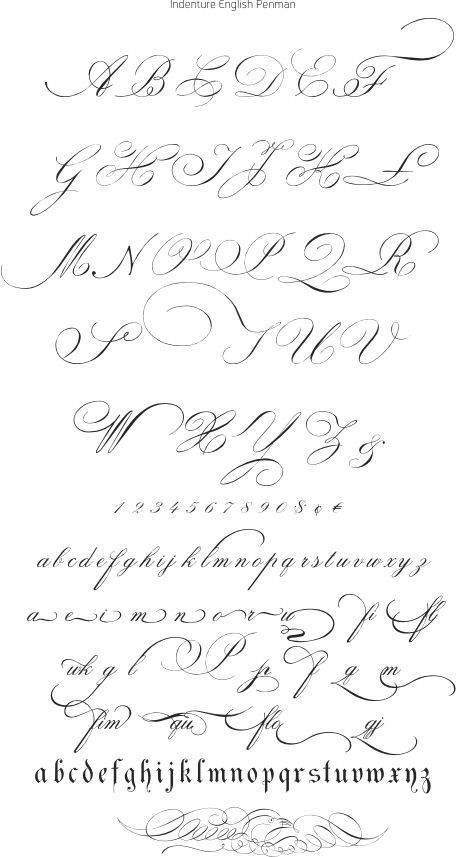 Indenture English Penman
A B C D E F
G H I J K L
M N O P Q R
S T U V
W X Y Z &
1 2 3 4 5 6 7 8 9 0 $ ¢ €
a b c d e f g h i j k l m n o p q r s t u v w x y z
a e i m n o r u fi fl
wk g l P p f q m
fim qu flo gj
a b c d e f g h i j k l m n o p q r s t u v w x y z